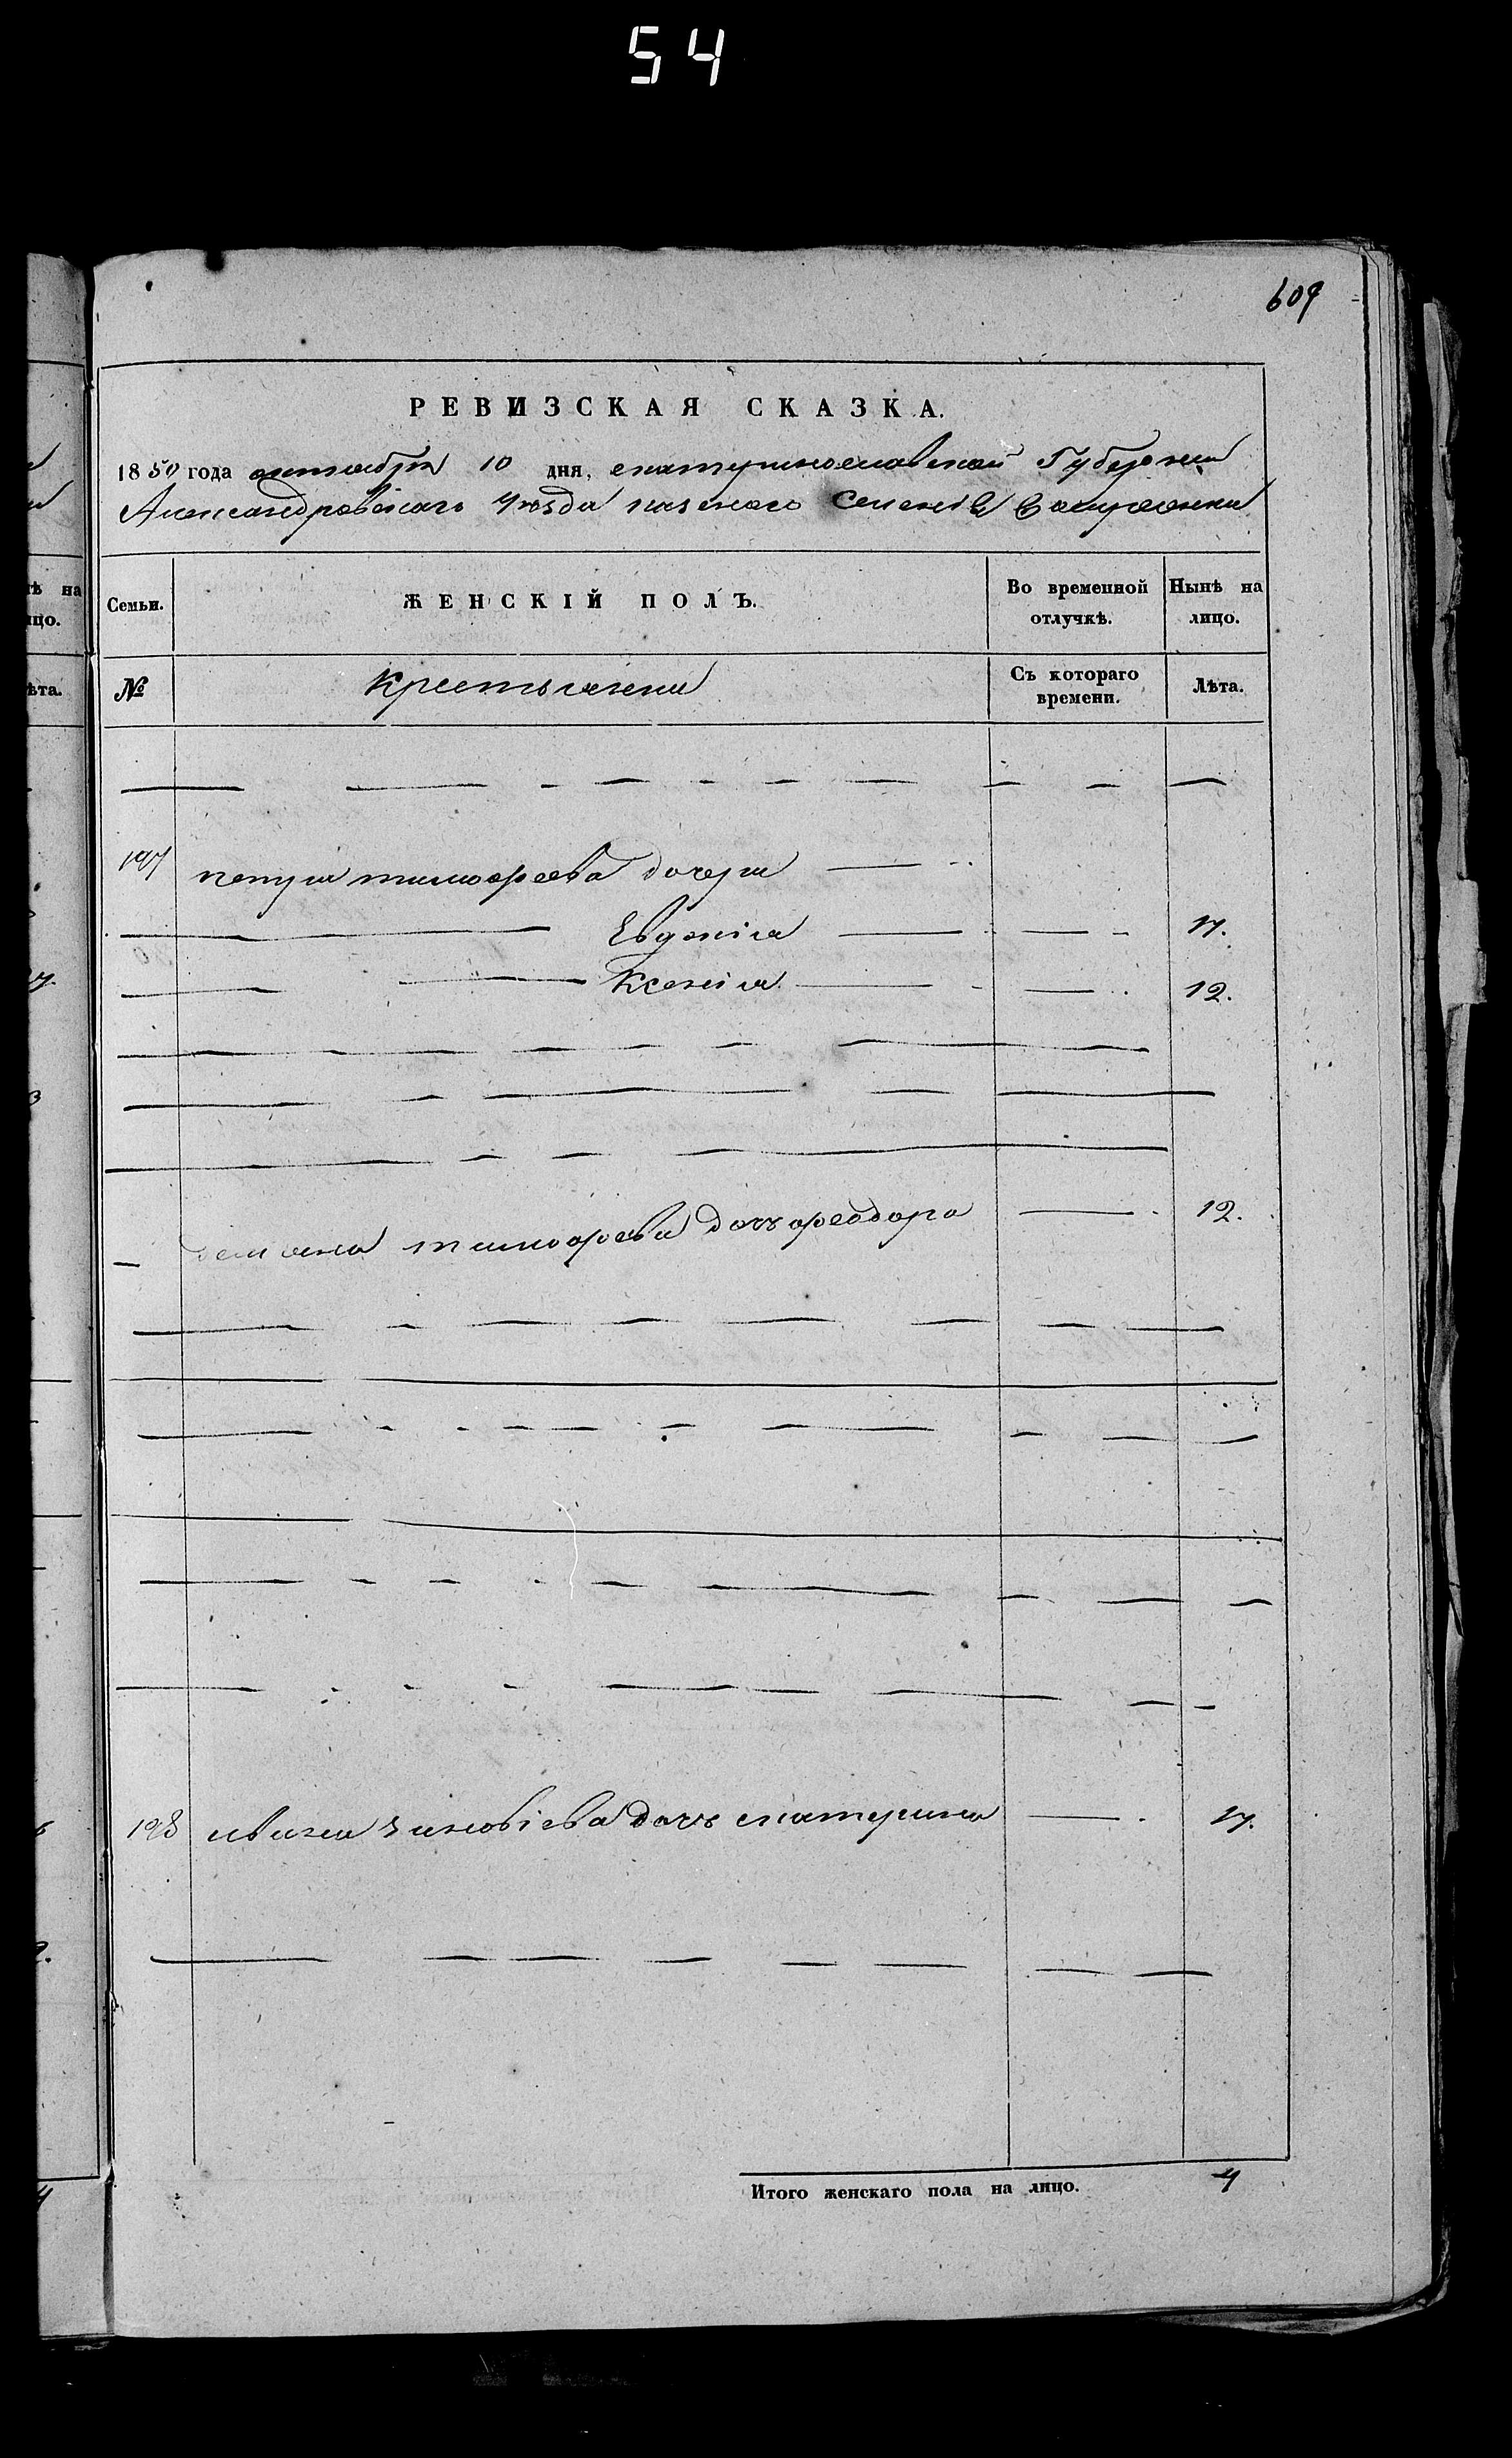 54
609
РЕВИЗСКАЯ СКАЗКА.
1850 года октября 10 дня, екатеринославской Губернии
Александровскаго Уѣзда казенаго Селенія
Семьи. ЖЕНСКІЙ ПОЛЪ. Во временной отлучкѣ. Нынѣ на лицо.
№ Крестьяни Съ котораго времени. Лѣта.
197 тимофеева дочери
Евдокія 17.
Ксенія 12.
демяна тимофеева дочъ феодора 12.
198 ивана зиновіева дочъ екатерина 17.
Итого женскаго пола на лицо. 4